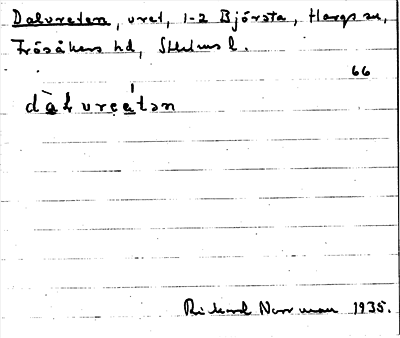 Dalvreten, vret, 1-2 Björsta, Hargs sn,
Frösåkers hd, Sthlms l.
66
Rickard Norrman 1935.